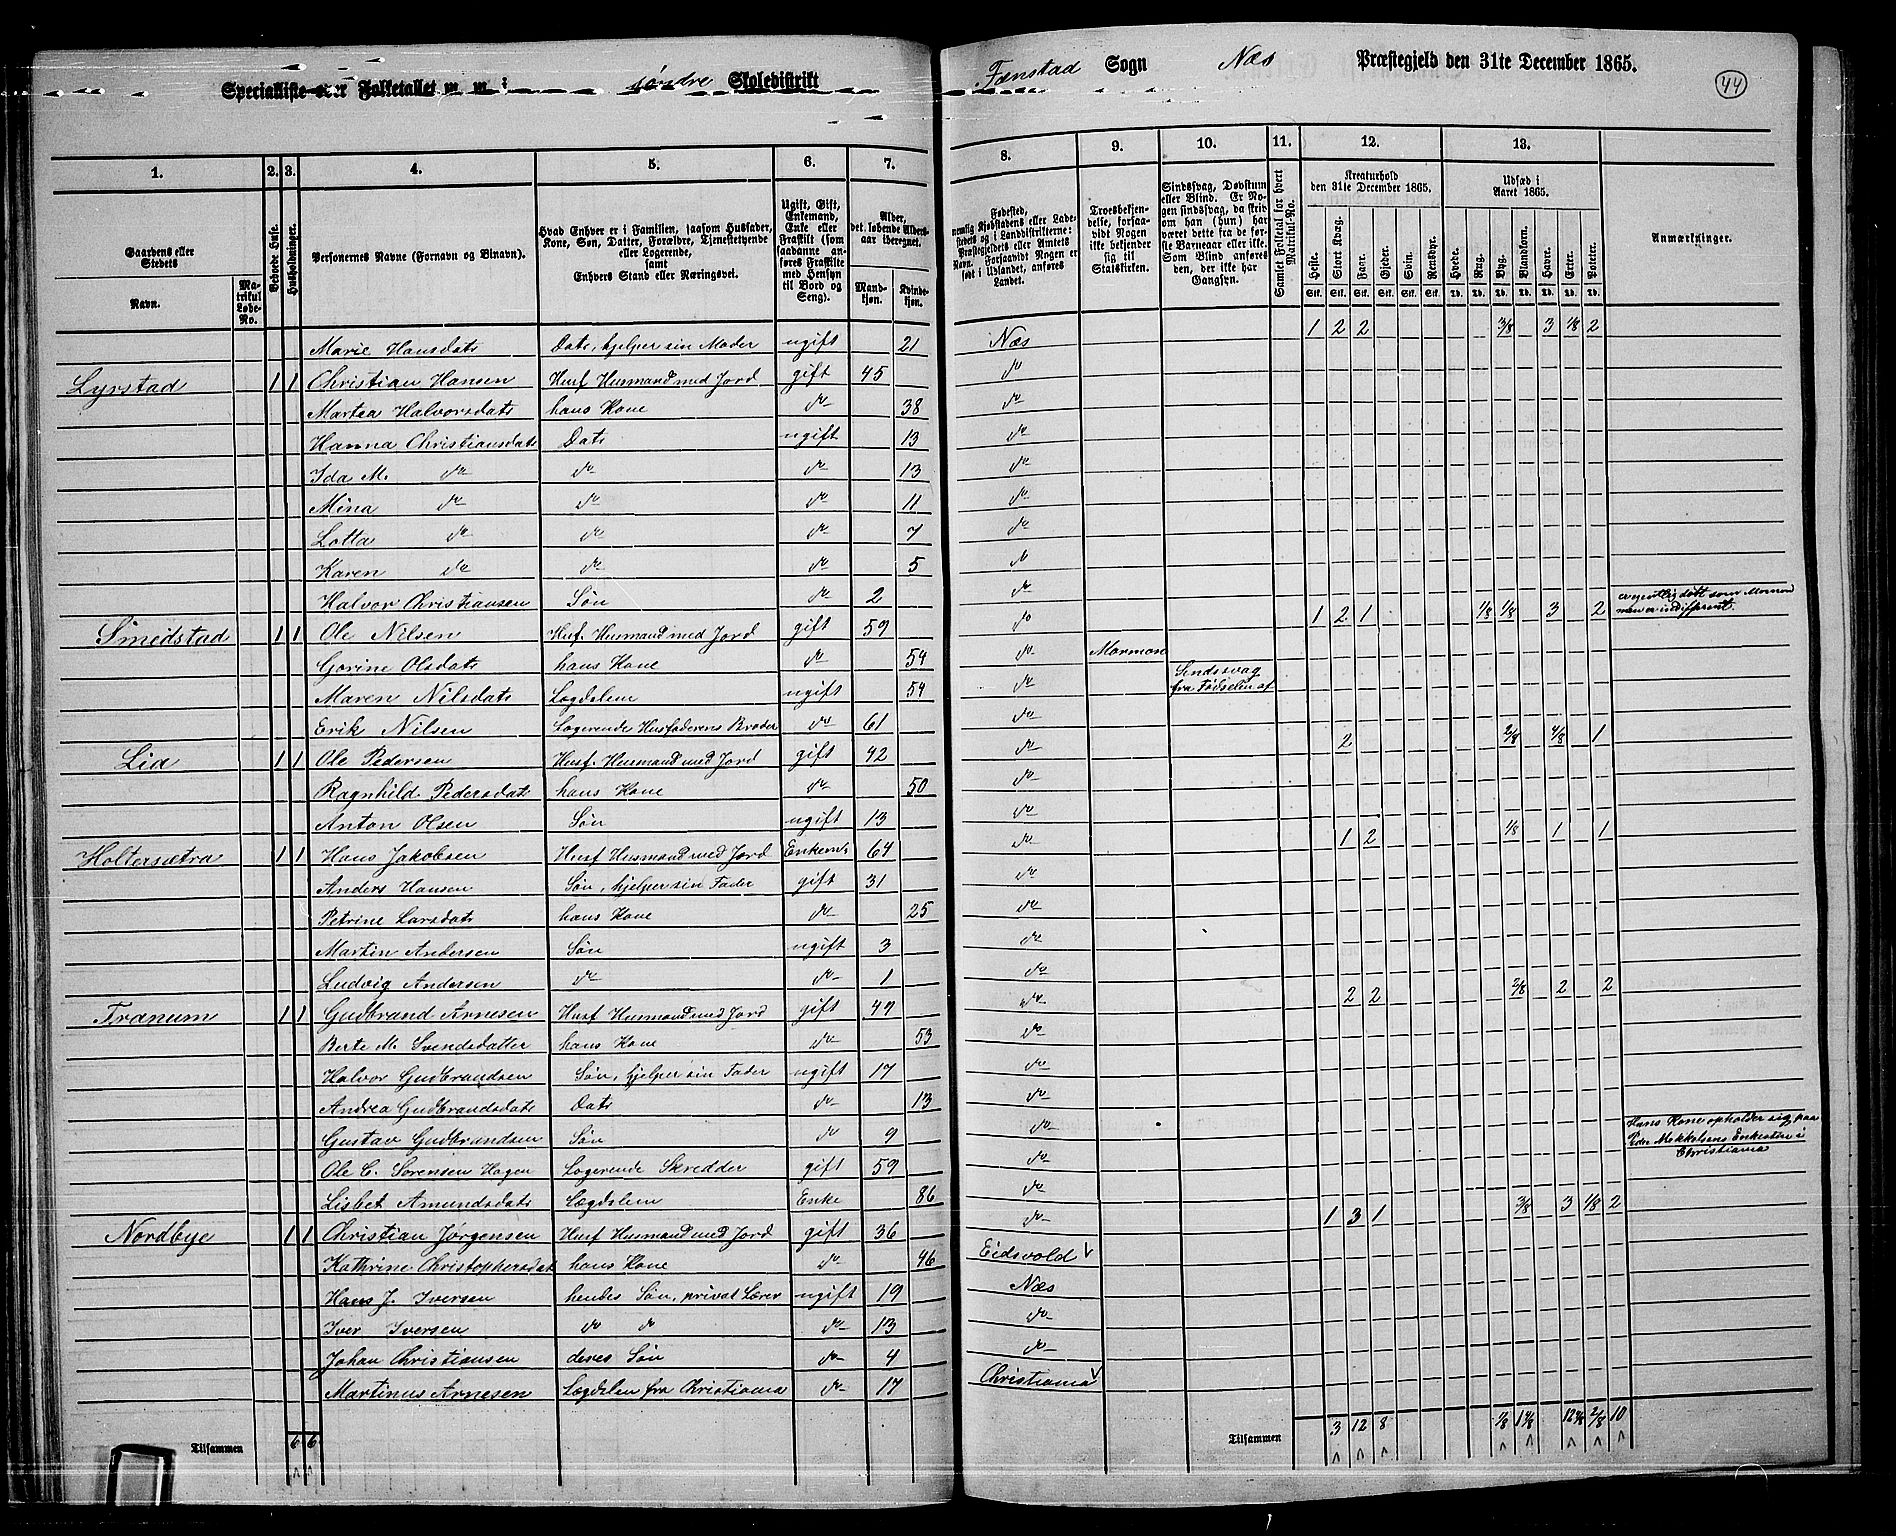 søndre Skoledistrikt
Fænstad Sogn Næs Præstegjeld den 31te December 1865.
44
1. 2. 3. 4. 5. 6. 7. 8. 9. 10. 11. 12. 13.
Gaardens eller Stedets
Navn.
Matrikul Løbe-No.
Beboede Huse.
Husholdninger.
Personernes Navne (Fornavn og Binavn).
Hvad Enhver er i Familien, saasom Husfader, Kone, Søn, Datter, Forældre, Tjenestetyende eller Logerende, samt Enhvers Stand eller Næringsvei.
Ugift, Gift, Enkemand, Enke eller Fraskilt (som saadanne anføres Fraskilte med Hensyn til Bord og Seng).
Alder, det løbende Alders-aar iberegnet.
Mandkjøn. Kvindekjøn.
Fødested, nemlig Kjøbstadens eller Ladestedets og i Landdistrikterne: Præstegjeldets eller Amtets Navn. Forsaavidt Nogen er født i Udlandet, anføres Landet.
Troesbekjendelse, forsaavidt Nogen ikke bekjender sig til Statskirken.
Sindssvag, Døvstum eller Blind. Er Nogen sindssvag, da skrives om han (hun) har været dette fra de første Barneaar eller ikke. Som Blind anføres den, der ikke har Gangsyn.
Samlet Folketal for hvert Matrikul-No.
Kreaturhold den 31te December 1865.
Heste. Stort Kvæg. Faar. Gjeder. Svin. Rensdyr.
Udsæd i Aaret 1865.
Hvede. Rug. Byg. Blandkorn. Havre. Erter. Poteter.
Anmærkninger.
Marie Hansdatr Datr, hjelper sin Moder ugift 21 Næs 1 2 2 3/8 3 1/8 2
Lyrstad 1 1 Christian Hansen Husf Husmand med Jord gift 45 do
Martea Halvorsdatr hans Kone do 38 do
Hanna Christiansdatr Datr ugift 13 do
Ida M. do do do 13 do
Mina do do do 11 do
Lotta do do do 7 do
Karen do do do 5 do
Halvor Christiansen Søn do 2 do
Smedstad 1 1 Ole Nilsen Husf. Husmand med Jord gift 59 do 1 2 1 1/8 1/8 3 2 men er indifferent
Gorine Olsdatr hans Kone do 54 do Mormon
Maren Nilsdatr Lægdslem ugift 54 do Sindssvag fra Fødselen af
Erik Nilsen Logerende Husfaderens Broder do 61 do
Lia 1 1 Ole Pedersen Husf. Husmand med Jord gift 42 do 2 2/8 4/8 1
Ragnhild Pedersdat hans Kone do 50 do
Anton Olsen Søn ugift 13 do
Holtersætra 1 1 Hans Jakobsen Husf Husmand med Jord Enkem. 64 do 1 2 1/8 1 1
Anders Hansen Søn, hjelper sin Fader gift 31 do
Petrine Larsdatr hans Kone do 25 do
Martin Andersen Søn ugift 3 do
Ludvig Andersen do do 1 do
Tranum 1 1 Gudbrand Arnesen Husf Husmand med Jord gift 49 do 2 2 2/8 2 2
Berte M. Svendsdatter hans Kone do 53 do
Halvor Gudbrandsen Søn, hjelper sin Fader ugift 17 do
Andrea Gudbrandsdatr Datr do 13 do
Gustav Gudbrandsen Søn do 9 do
Ole C. Sørensen Hagen Logerende Skredder gift 59 do Hans Kone opholder sig paa Peder Mekkelsens Enkestue i Christiania
Lisbet Amundsdatr Lægdslem Enke 86 do
Nordbye 1 1 Christian Jørgensen Husf Husmand med Jord gift 36 do 1 3 1 3/8 3 1/8 2
Kathrine Christophersdat hans Kone do 46 Eidsvold
Hans J. Iversen hendes Søn, privat Lærer ugift 19 Næs
Iver Iversen do do do 13 do
Johan Christiansen deres Søn do 4 do
Martinus Arnesen Lægdslem fra Christiania do 17 Christiania
Tilsammen 6 6 Tilsammen 3 12 8 1/8 1 4/8 12 4/8 2/8 10